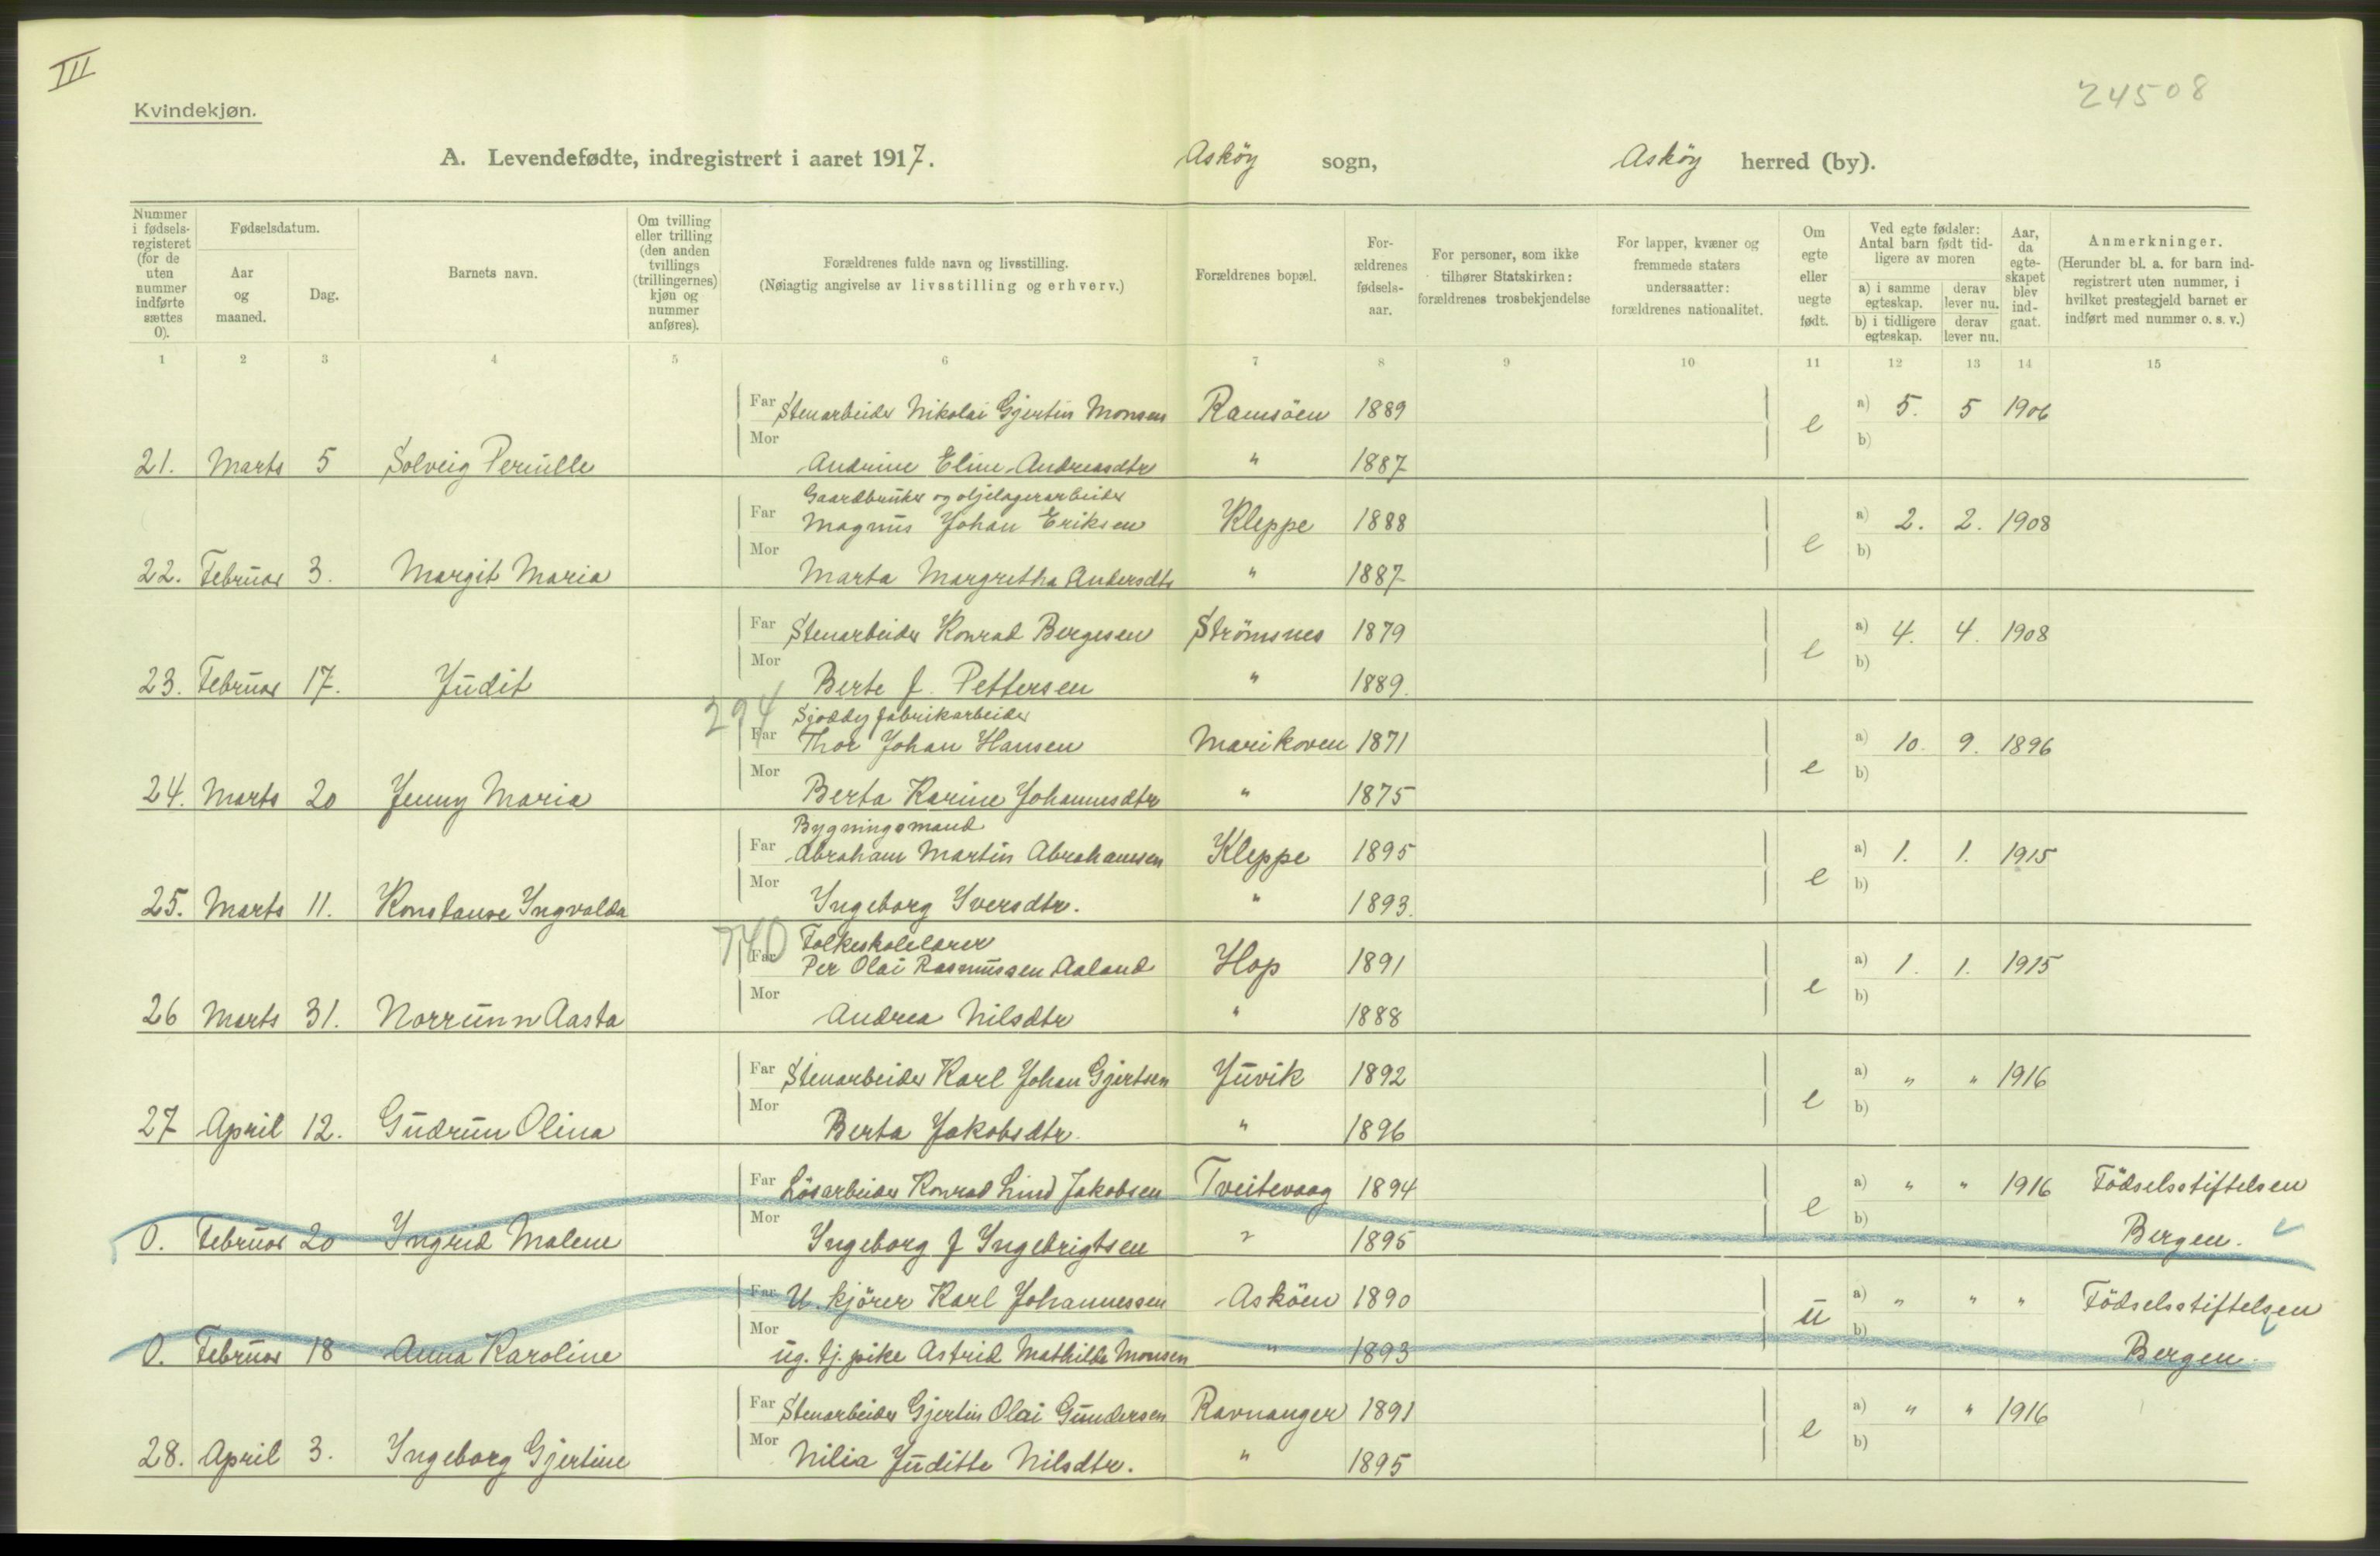 III
24508
Kvindekjøn.
A. Levendefødte, indregistrert i aaret 1917. Asköy sogn, Asköy herred (by).
Nummer i fødselsregisteret (for de uten nummer indførte sættes 0).
Fødselsdatum.
Aar og maaned.
Dag.
Barnets navn.
Om tvilling eller trilling (den anden tvillings (trillingernes) kjøn og nummer anføres).
Forældrenes fulde navn og livsstilling.
(Nøiagtig angivelse av livsstilling og erhverv.)
Forældrenes bopæl.
Forældrenes fødselsaar.
For personer, som ikke tilhører Statskirken: forældrenes trosbekjendelse
For lapper, kvæner og fremmede staters undersaatter: forældrenes nationalitet.
Om egte eller uegte født.
Ved egte fødsler: Antal barn født tidligere av moren
a) i samme egteskap. derav lever nu.
b) i tidligere egteskap. derav lever nu.
Aar, da egteskapet blev indgaat.
Anmerkninger.
(Herunder bl. a. for barn indregistrert uten nummer, i hvilket prestegjeld barnet er indført med nummer o. s. v.)
1 2 3 4 5 6 7 8 9 10 11 12 13 14 15
Far Stenarbeider Nikolai Gjertin Monsen Ramsöen 1889 e a) 5. 5 1906
Mor b)
21. Marts 5 Solveig Pernille Andrine Eline Andreasdtr " 1887
Gaardbruker og oljelagerarbeider
Far Magnus Johan Eriksen Kleppe 1888 e a) 2. 2. 1908
Mor b)
22. Februar 3. Margit Maria Marta Margretha Andersdtr " 1887
Far Stenarbeider Konrad Bergesen Strömsnes 1879 e a) 4. 4. 1908
Mor b)
23. Februar 17. Judit Berte J. Pettersen " 1889.
294 Sjoddy fabrikarbeider
Far Thor Johan Hansen Marikoven 1871 e a) 10. 9. 1896
Mor b)
24. Marts 20 Jenny Maria Berta Karine Johannesdtr " 1875
Bygningsmand
Far Abraham Martin Abrahamsen Kleppe 1895 e a) 1. 1. 1915
Mor b)
25. Marts 11. Konstanse Ingvalda Ingeborg Iversdtr. " 1893.
740 Folkeskolelærer
Far Per Olai Rasmussen Aaland Hop 1891 e a) 1. 1. 1915
Mor b)
26 Marts 31. Norrunn Aasta Andrea Nilsdtr " 1888
Far Stenarbeider Karl Johan Gjertsen Juvik 1892 e a) " " 1916
Mor b)
27 April 12. Gudrun Olina Berta Jakobsdtr. " 1896
Far Lösarbeider Konrad Lind Jakobsen Tveitevaag 1894 e a) " " 1916 Födselsstiftelsen
Mor b)
0. Februar 20 Ingrid Malene Ingeborg J Ingebrigtsen " 1895 Bergen.
Far U. kjörer Karl Johannessen Asköen 1890 u a) " " " Födselsstiftelsen
Mor b)
0. Februar 18 Anna Karoline ug. tj. pike Astrid Mathilde Monsen " 1893 Bergen.
Far Stenarbeider Gjertin Olai Gundersen Ravnanger 1891 e a) " " 1916
Mor b)
28. April 3. Ingeborg Gjertine Nilia Juditte Nilsdtr. " 1895